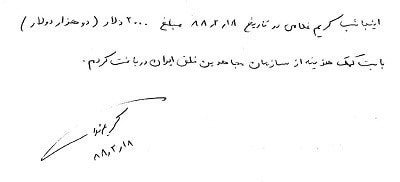 اینجانب کریم غلامی در تاریخ ۸۸٫۲٫۱۸ مبلغ ۲۰۰۰ دلار ( دو هزار دولار )
بابت کمک هزینه از سازمان مجاهدین خلق ایران دریافت کردم.
۸۸٫۲٫۱۸